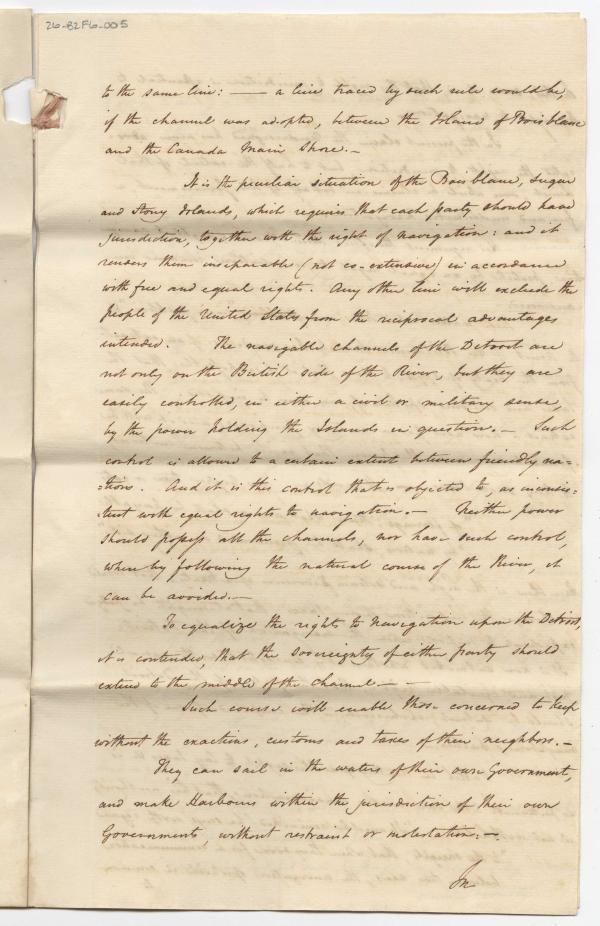 26-B2F6-005
to the same line: — a line traced by such rule would be,
if the channel was adopted, between the Island of Boisblanc
and the Canada Main Shore.—
It is the peculiar situation of the Bois blanc, Sugar
and Stony Islands, which requires that each party should have
jurisdiction, together with the right of navigation: and it
renders them inseparable (not co-extensive) in accordance
with free and equal rights. Any other line will exclude the
people of the United States from the reciprocal advantages
intended. The navigable channels of the Detroit are
not only on the British side of the River, but they are
easily controlled, in either a civil or military sense,
by the power holding the Islands in question.— Such
control is allowed to a certain extent between friendly na-
-tions. And it is this control that is objected to, as inconsis-
-tent with equal rights to navigation.— Neither power
should possess all the channels, nor have such control,
when by following the natural course of the River, it
can be avoided.—
To equalize the rights to Navigation upon the Detroit,
it is contended, that the Sovereignty of either party should
extend to the middle of the channel— –
Such course will enable those concerned to keep
without the exactions, customs and taxes of their neighbors.—
They can sail in the waters of their own Government,
and make Harbours within the jurisdiction of their own
Governments, without restraint or molestation:—
In